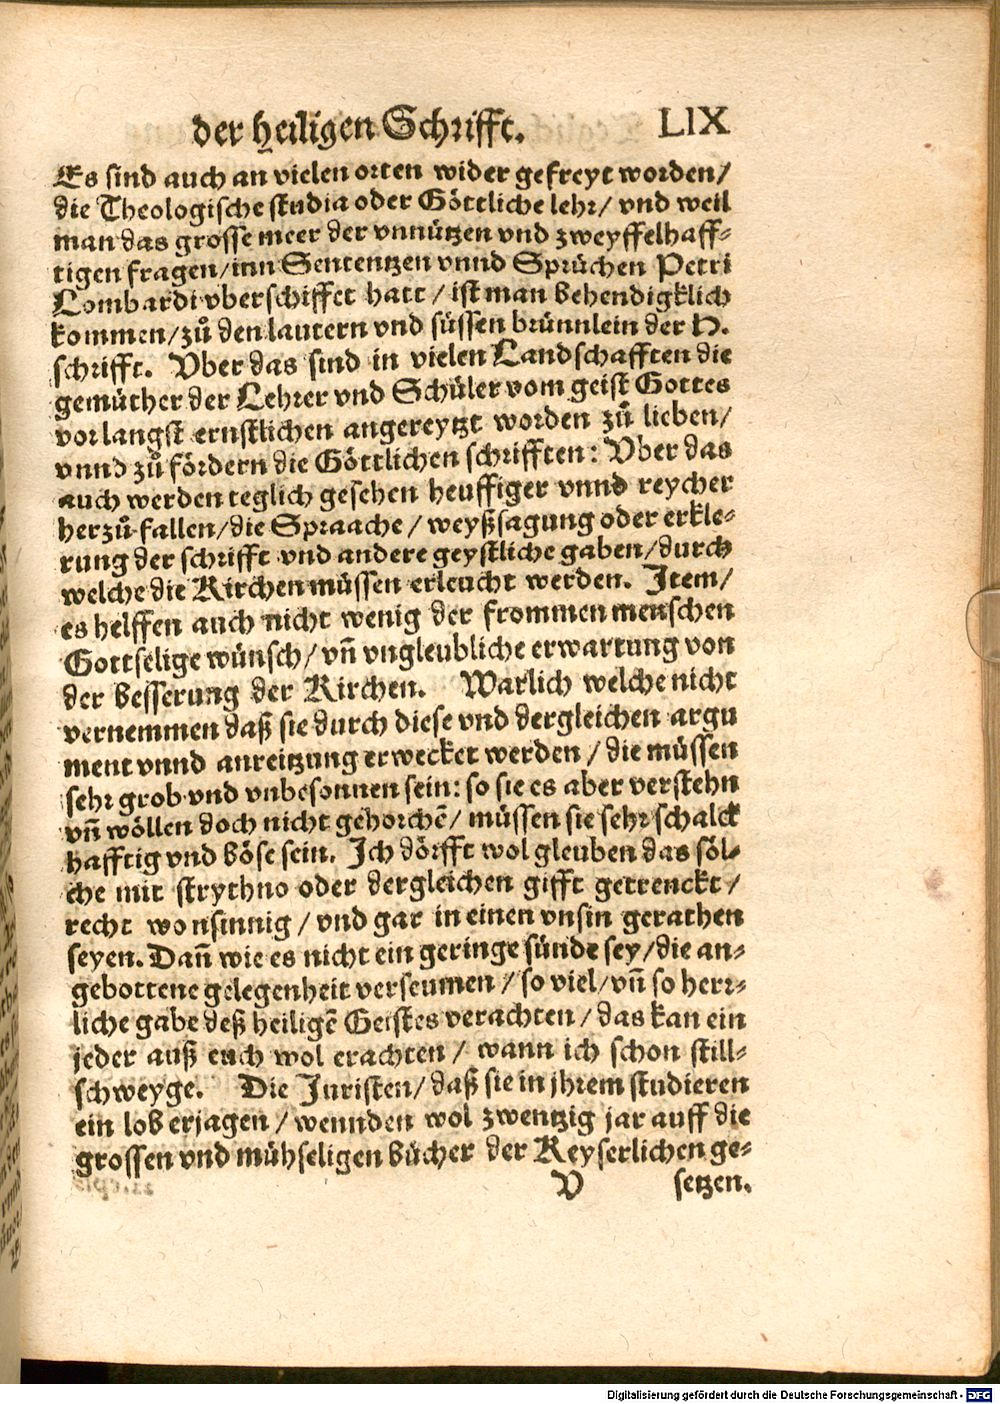 der heiligen Schrifft. LIX
Es sind auch an vielen orten wider gefreyt worden/
die Theologische studia oder Göttliche lehr/ vnd weil
man das grosse meer der vnnützen vnd zweyffelhaff-
tigen fragen/inn Sententzen vnnd Sprüchen Petri
Lombardi vberschiffet hatt / ist man behendigklich
kommen/zů den lautern vnd süssen brünnlein der H.
schrifft. Vber das sind in vielen Landschafften die
gemüther der Lehrer vnd Schüler vom geist Gottes
vorlangst ernstlichen angereytzt worden zů lieben/
vnnd zů fördern die Göttlichen schrifften: Vber das
auch werden teglich gesehen heuffiger vnnd reycher
herzů fallen/die Spraache / weyßsagung oder erkle-
rung der schrifft vnd andere geystliche gaben/durch
welche die Kirchen müssen erleucht werden. Item/
es helffen auch nicht wenig der frommen menschen
Gottselige wünsch/ vñ vngleubliche erwartung von
der besserung der Kirchen. Warlich welche nicht
vernemmen daß sie durch diese vnd dergleichen argu
ment vnnd anreitzung erwecket werden / die müssen
sehr grob vnd vnbesonnen sein: so sie es aber verstehn
vñ wöllen doch nicht gehorchẽ/ müssen sie sehr schalck
hafftig vnd böse sein. Ich dörfft wol gleuben das söl-
che mit strythno oder dergleichen gifft getrenckt /
recht wonsinnig / vnd gar in einen vnsin gerathen
seyen. Dañ wie es nicht ein geringe sünde sey/die an-
gebottene gelegenheit verseumen / so viel/vñ so herr-
liche gabe deß heiligẽ Geistes verachten / das kan ein
jeder auß euch wol erachten / wann ich schon still-
schweyge. Die Juristen/ daß sie in jhrem studieren
ein lob erjagen / wennden wol zwentzig jar auff die
grossen vnd mühseligen bücher der Keyserlichen ge-
V setzen.
Digitalisierung gefördert durch die Deutsche Forschungsgemeinschaft - DFG